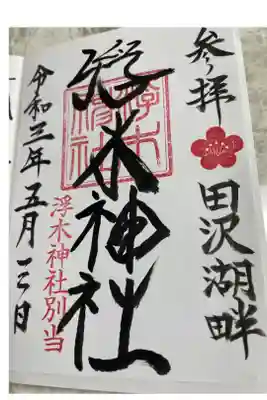 参拝
田沢湖畔
浮木神社
浮木神社
浮木神社別当
令和三年五月三日